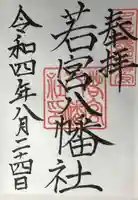 奉拝
若宮八幡社
令和四年八月二十四日